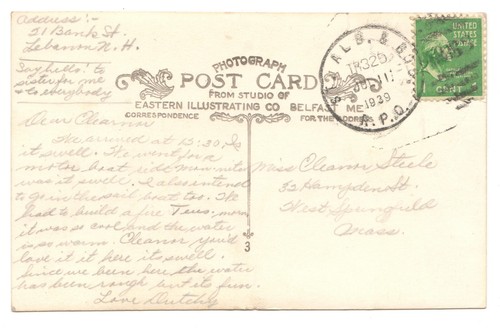 Address:-
21 Bank St.
Lebanon N.H.
Say hello! to
sister for me
& to everybody
PHOTOGRAPH
POST CARD
FROM STUDIO OF
EASTERN ILLUSTRATING CO. BELFAST ME.
CORRESPONDENCE
FOR THE ADDRESS
ST. ALB. & BOS
TR 325
1939
R.P.O.
UNITED STATES
POSTAGE
1 CENT
Dear Eleanor
We arrived at 12:30. Is
it swell. We went for a
motor boat ride Mon. nite
was it swell. I also intend
to go in the sail boat too. We
had to build a fire Tues. morn
it was so cool and the water
is so warm. Eleanor you'd
love it it here its swell.
Since we been here the water
has been rough but its fun.
Love Dutchy
Miss Eleanor Steele
32 Hampden St.
West Springfield
Mass.
3